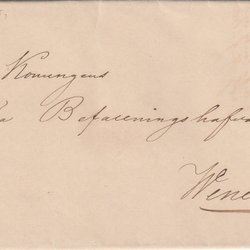 Konungens
a Befallningshafva
Wene